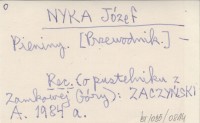 o
NYKA Józef
Pieniny. [Przewodnik.] —
Rec. (o pustelniku z
Zamkowej Góry): ZACZYŃSKI
A. 1984 a.